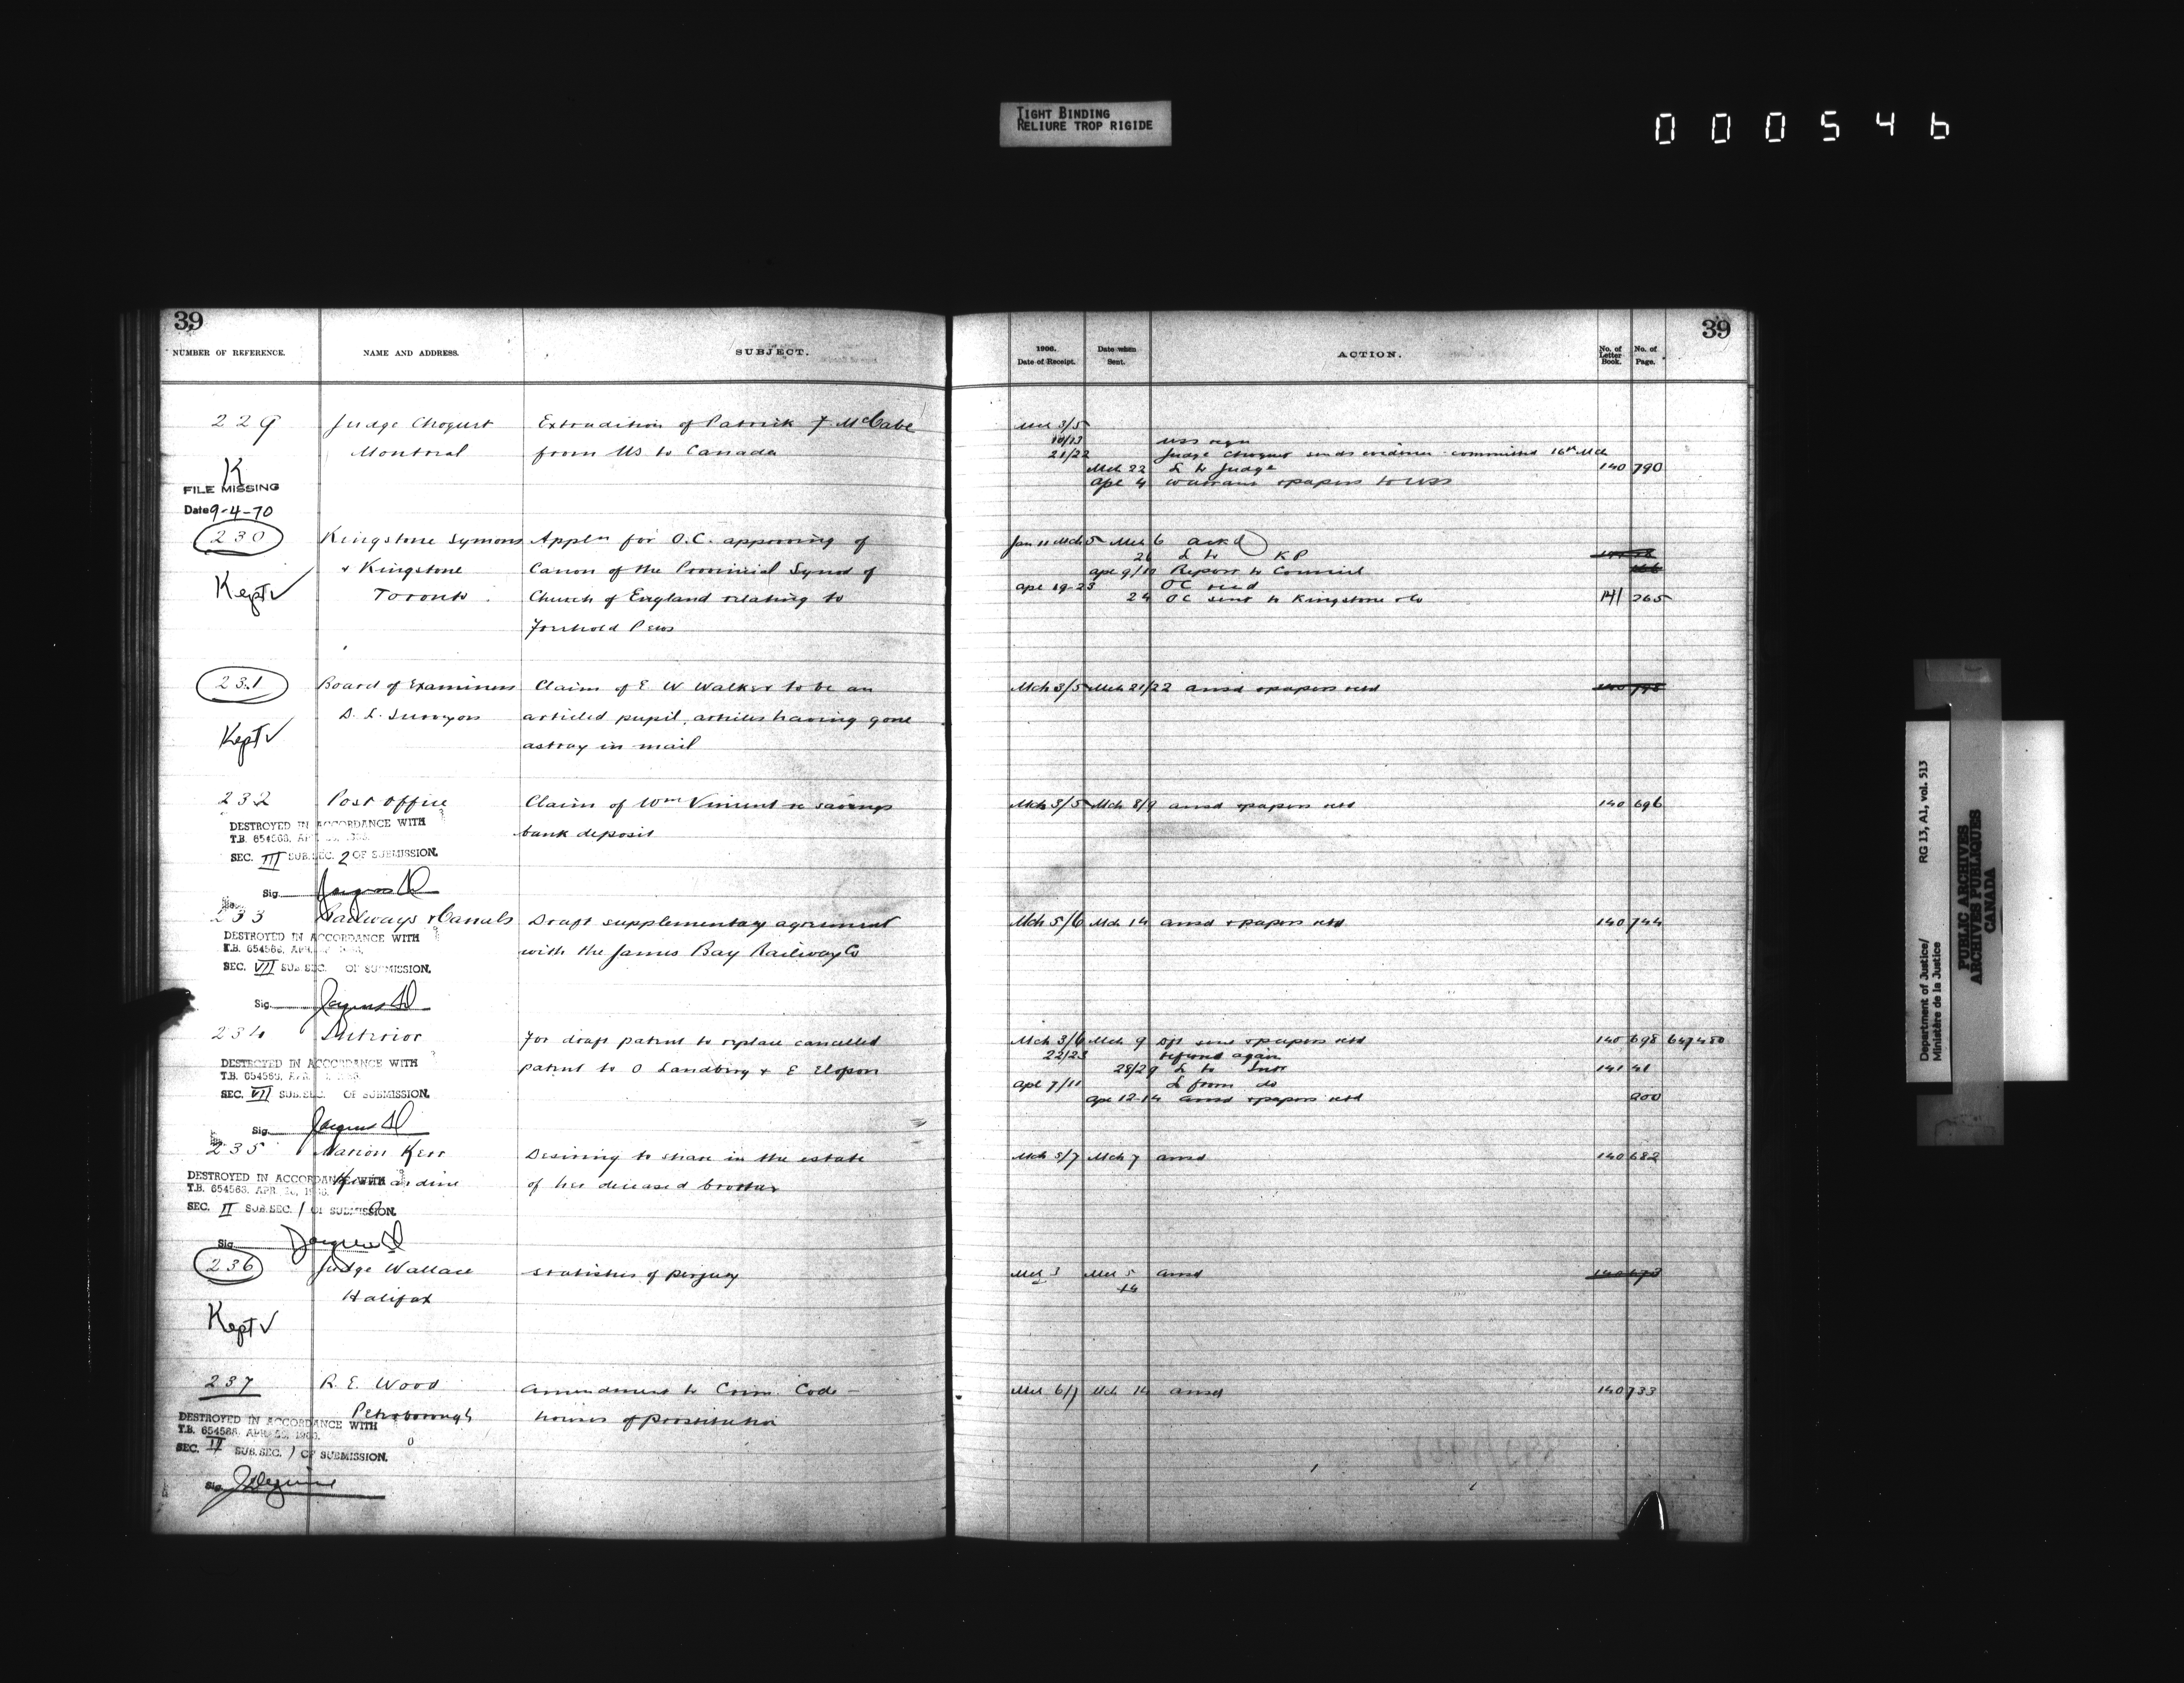 TIGHT BINDING
RELIURE TROP RIGIDE
000546
39
NUMBER OF REFERENCE. NAME AND ADDRESS. SUBJECT.
229 Judge Choquet Extradition of Patrick F McCabe
Montreal from US to Canada
K
FILE MISSING
Date 9-4-70
230 Kingstone Symons Appln for O.C. approving of
& Kingstone Canon of the Provincial Synod of
Kept ✓
Toronto Church of England relating to
Freehold Pews
231 Board of Examiners Claim of E W Walker to be an
D. L. Surveyors articled pupil, articles having gone
Kept ✓
astray in mail
232 Post Office Claim of Wm Vincent re savings
bank deposit
DESTROYED IN ACCORDANCE WITH
T.B. 654563, APR.
SEC. III SUB.SEC. 2 OF SUBMISSION.
Sig.
233 Railways & Canals Draft supplementary agreement
with the James Bay Railway Co
DESTROYED IN ACCORDANCE WITH
T.B. 654563, APR.
SEC. VII SUB.SEC. OF SUBMISSION.
Sig.
234 Interior For draft patent to replace cancelled
patent to O Landberg & E
DESTROYED IN ACCORDANCE WITH
T.B. 654563,
SEC. VII SUB.SEC. OF SUBMISSION.
Sig.
235 Marion Kerr Desiring to share in the estate
Kincardine of her deceased brother
DESTROYED IN ACCORDANCE WITH
T.B. 654563, APR.
SEC. II SUB.SEC. 1 OF SUBMISSION.
Sig.
236 Judge Wallace statistics of perjury
Halifax
Kept ✓
237 R. E. Wood Amendment to Crim. Code -
Peterborough houses of prostitution
DESTROYED IN ACCORDANCE WITH
T.B. 654563, APR.
SEC. II SUB.SEC. 1 OF SUBMISSION.
Sig.
39
1906.
Date of Receipt. Date when Sent. ACTION. No. of Letter Book. No. of Page.
Mch 3/5
10/13 USS
21/22 Judge Choquet sends evidence - committed 16th Mch
Mch 22 L to Judge 140 790
Apl 4 warrant & papers to USS
Jan 11 Mch 5 Mch 6 ackd
21 L to KP
Apl 9/10 Report to Council
Apl 19-23 OC recd
24 OC sent to Kingstone & Co 141 265
Mch 3/5 Mch 21/22 ansd & papers retd 140 798
Mch 3/5 Mch 8/9 ansd & papers retd 140 696
Mch 5/6 Mch 14 ansd & papers retd 140 744
Mch 3/6 Mch 9 Dft sent & papers retd 140 698
22/23 referred again
28/29 L to Intr 141 41
Apl 7/11 L from do
Apl 12-14 ansd & papers retd 200
Mch 5/7 Mch 7 ansd 140 682
Mch 3 Mch 5 ansd
14
Mch 6/7 Mch 14 ansd 140 733
Department of Justice/ RG 13, A1, vol. 513
Ministère de la Justice
PUBLIC ARCHIVES
ARCHIVES PUBLIQUES
CANADA